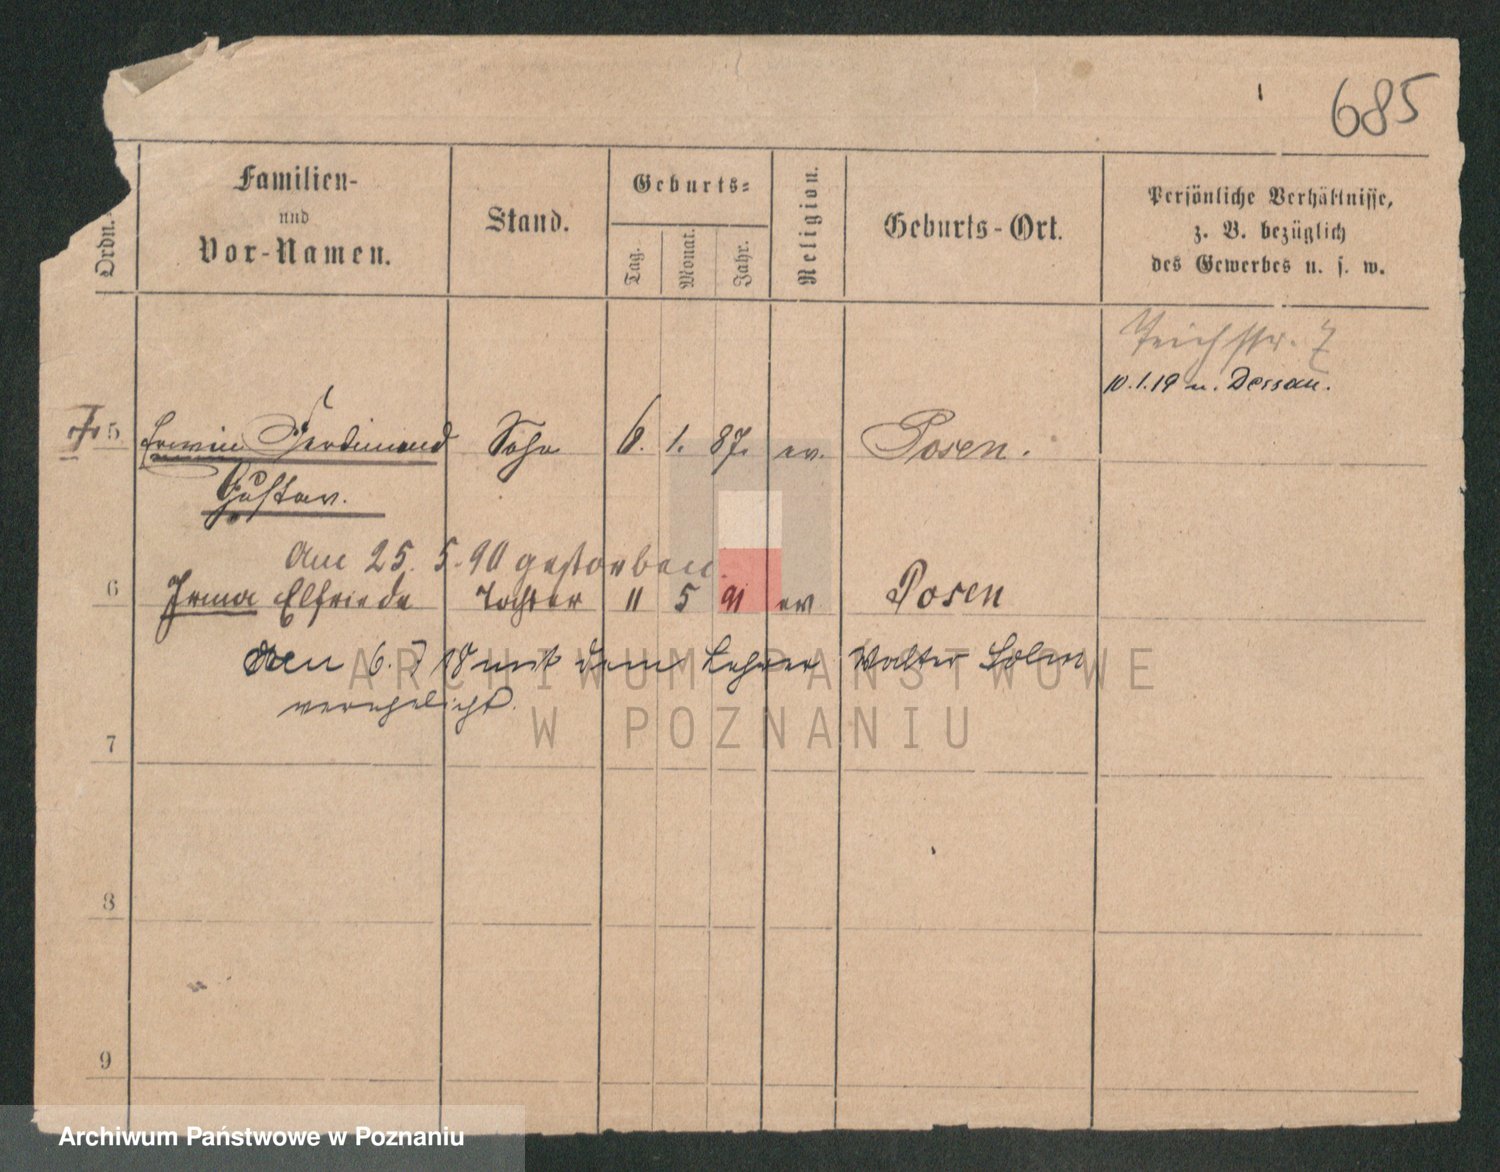 685
Ordn.
Familien-
und
Vor-Namen.
Stand.
Geburts-
Tag.
Monat.
Jahr.
Religion.
Geburts-Ort.
Persönliche Verhältnisse,
z. B. bezüglich
des Gewerbes u. s. w.
Teichstr. 7
10.1.19 n. Dessau.
5 Erwin Ferdinand Sohn 6. 1. 87. ev. Posen.
Gustav.
Am 25. 5. 90 gestorben
6 Irma Elfriede Tochter 11 5 91 ev Posen
Am 6. 7 18 mit dem Lehrer Walter
verehelicht.
7
8
9
ARCHIWUM PAŃSTWOWE
W POZNANIU
Archiwum Państwowe w Poznaniu